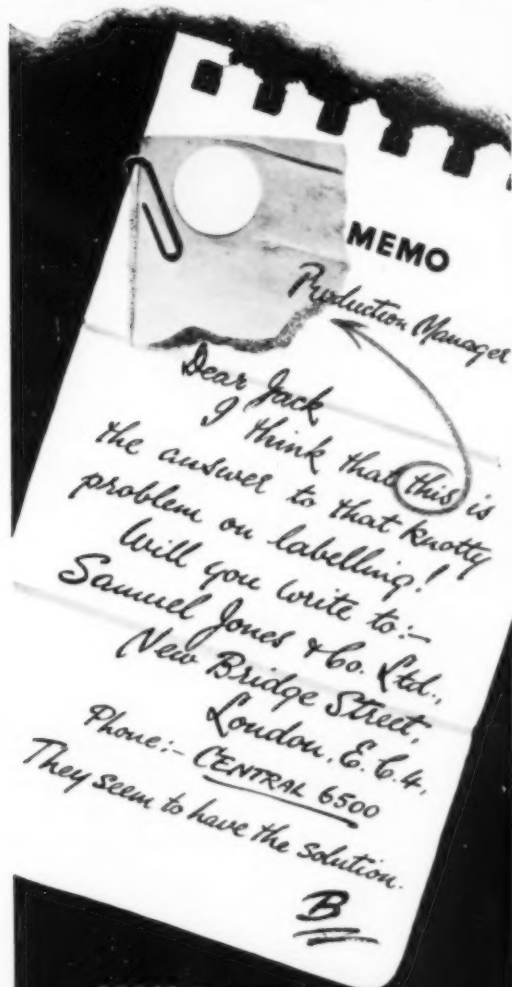 MEMO
Production Manager
Dear Jack
I think that this is
the answer to that knotty
problem on labelling!
Will you write to:-
Samuel Jones & Co. Ltd.,
New Bridge Street,
London. E.C.4.
Phone:- CENTRAL 6500
They seem to have the solution.
B